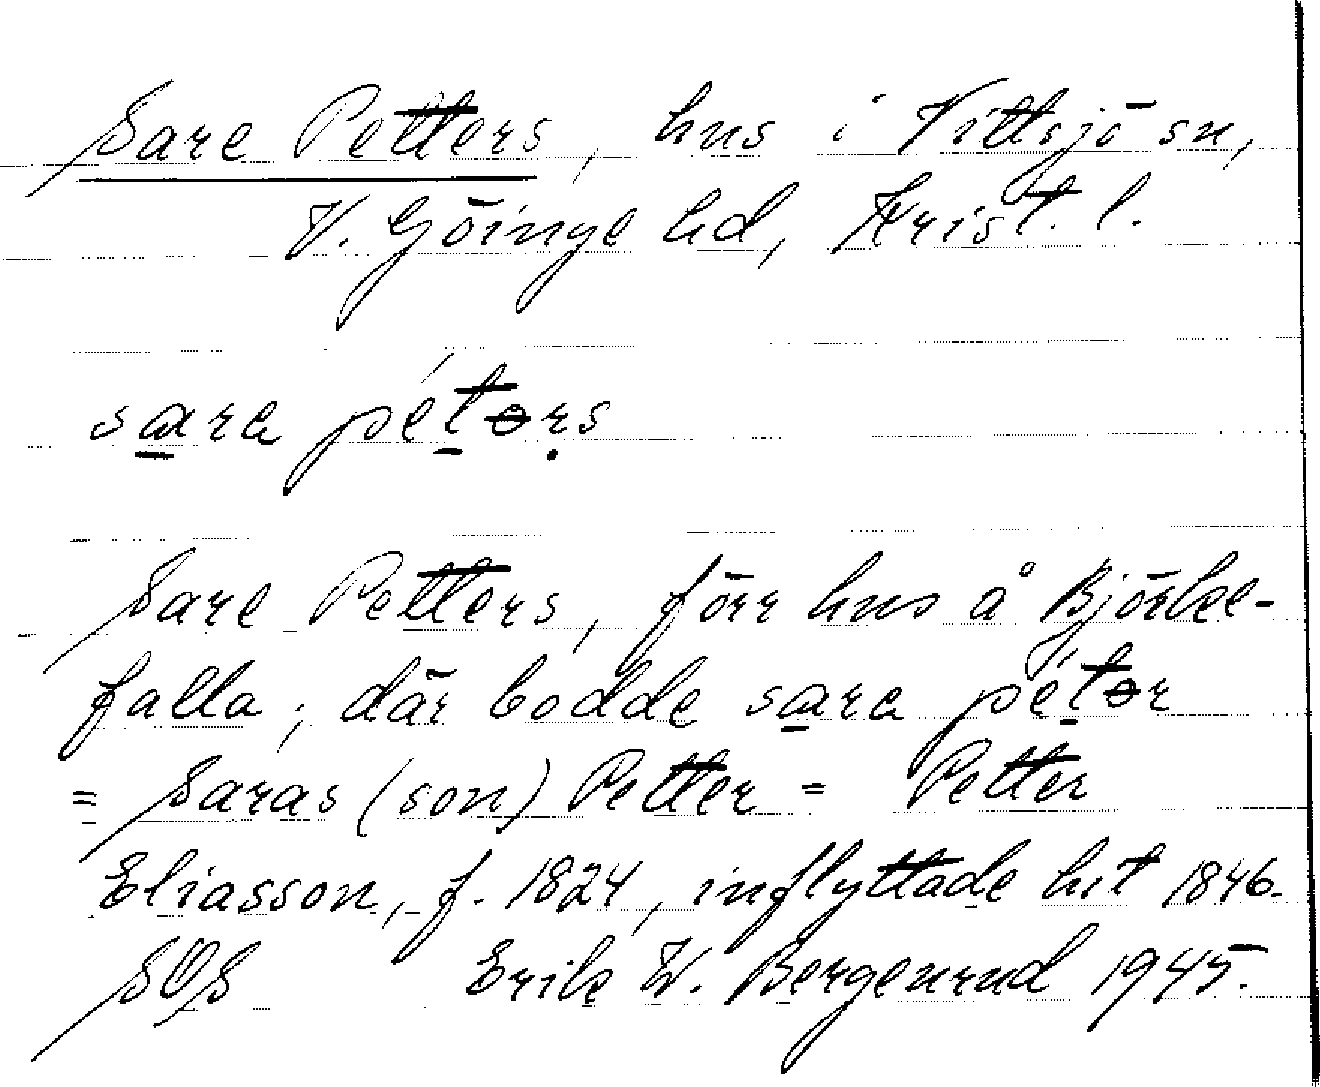 Sare Petters, hus i Vittsjö sn,
V. Göinge hd, Krist. l.
sara pétərs
Sare Petters, förr hus å Björke-
falla; där bodde sara pétər
= Saras (son) Petter = Petter
Eliasson, f. 1824, inflyttade hit 1846.
SOS Erik W. Bergenrud 1945.